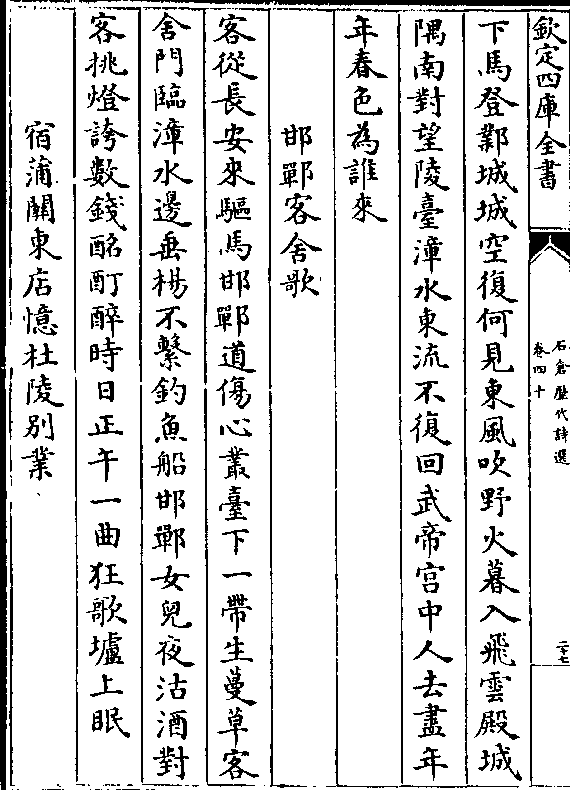 欽定四庫全書
石倉歷代詩選
卷四十
二十七
下馬登鄴城城空復何見東風吹野火暮入飛雲殿城
隅南對望陵臺漳水東流不復回武帝宮中人去盡年
年春色為誰來
邯鄲客舍歌
客從長安來驅馬邯鄲道傷心叢臺下一帶生蔓草客
舍門臨漳水邊垂楊不繫釣魚船邯鄲女兒夜沽酒對
客挑燈誇數錢酩酊醉時日正午一曲狂歌壚上眠
宿蒲關東店憶杜陵別業